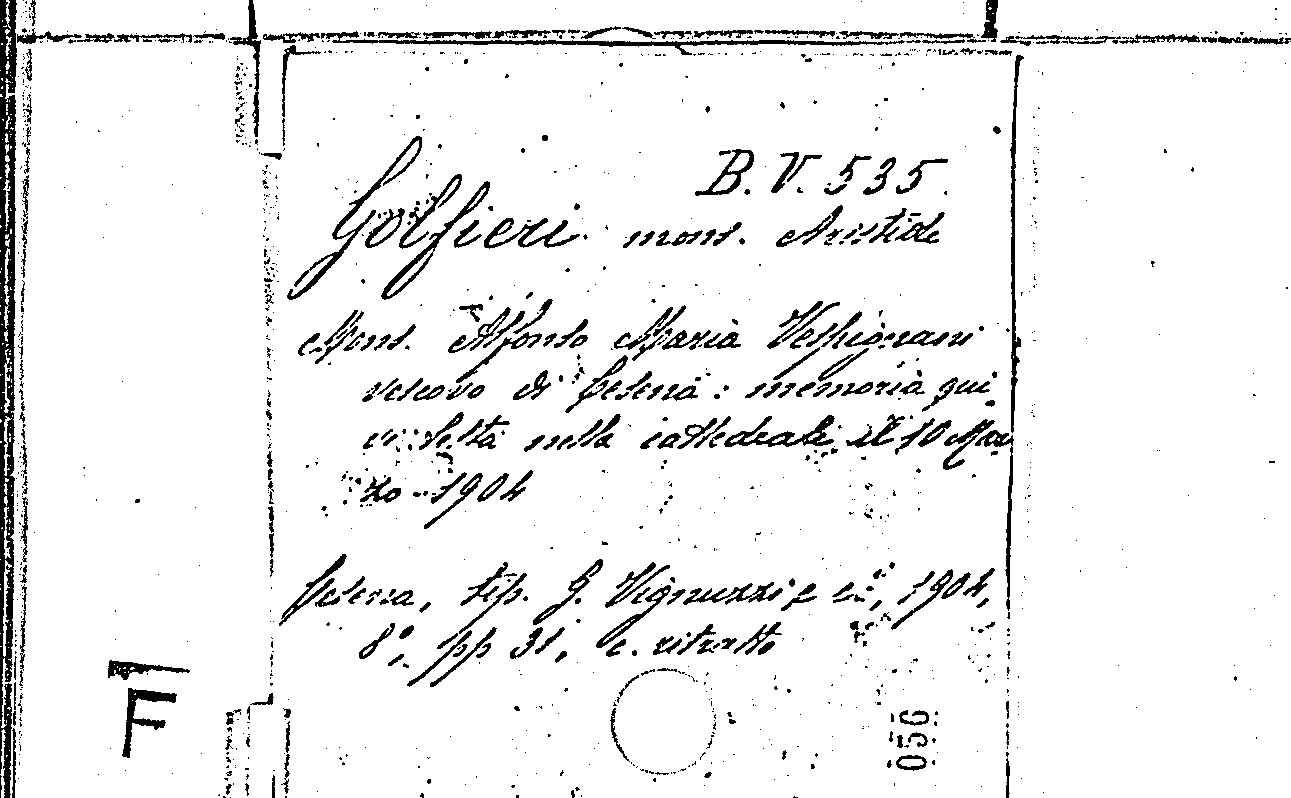 B. V. 535.
Golfieri mons. Aristide
Mons. Alfonso Maria Vespignani
vescovo di Cesena: memoria qui
vi letta nella cattedrale il 10 Mar
zo 1904
Cesena, tip. G. Vignuzzi e ci, 1904,
8°, pp 31, c. ritratto
F
056